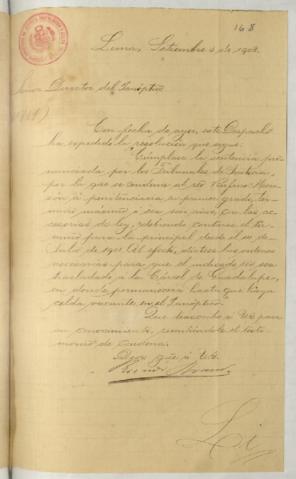 168
Lima, Setiembre 3 de 1902.
Señor Director del Panóptico
Con fecha de ayer, este Despacho
ha expedido la resolución que sigue:
"Cúmplase la sentencia pro-
nunciada por los Tribunales de Justicia,
por la que se condena al reó
á penitenciaría en primer grado, tér-
mino máximo ó sea seis años, con las
accesorias de ley, debiendo contarse el tér-
mino para la principal desde el
de 1901. Al efecto, díctese las órdenes
necesarias para que el indicado reo sea
trasladado a la Cárcel de Guadalupe,
en donde permanecerá hasta que haya
celda vacante en el Panóptico".
Que trascribo á US. para
su conocimiento, remitiéndole el testi-
monio de condena.
Dios gue. á US.